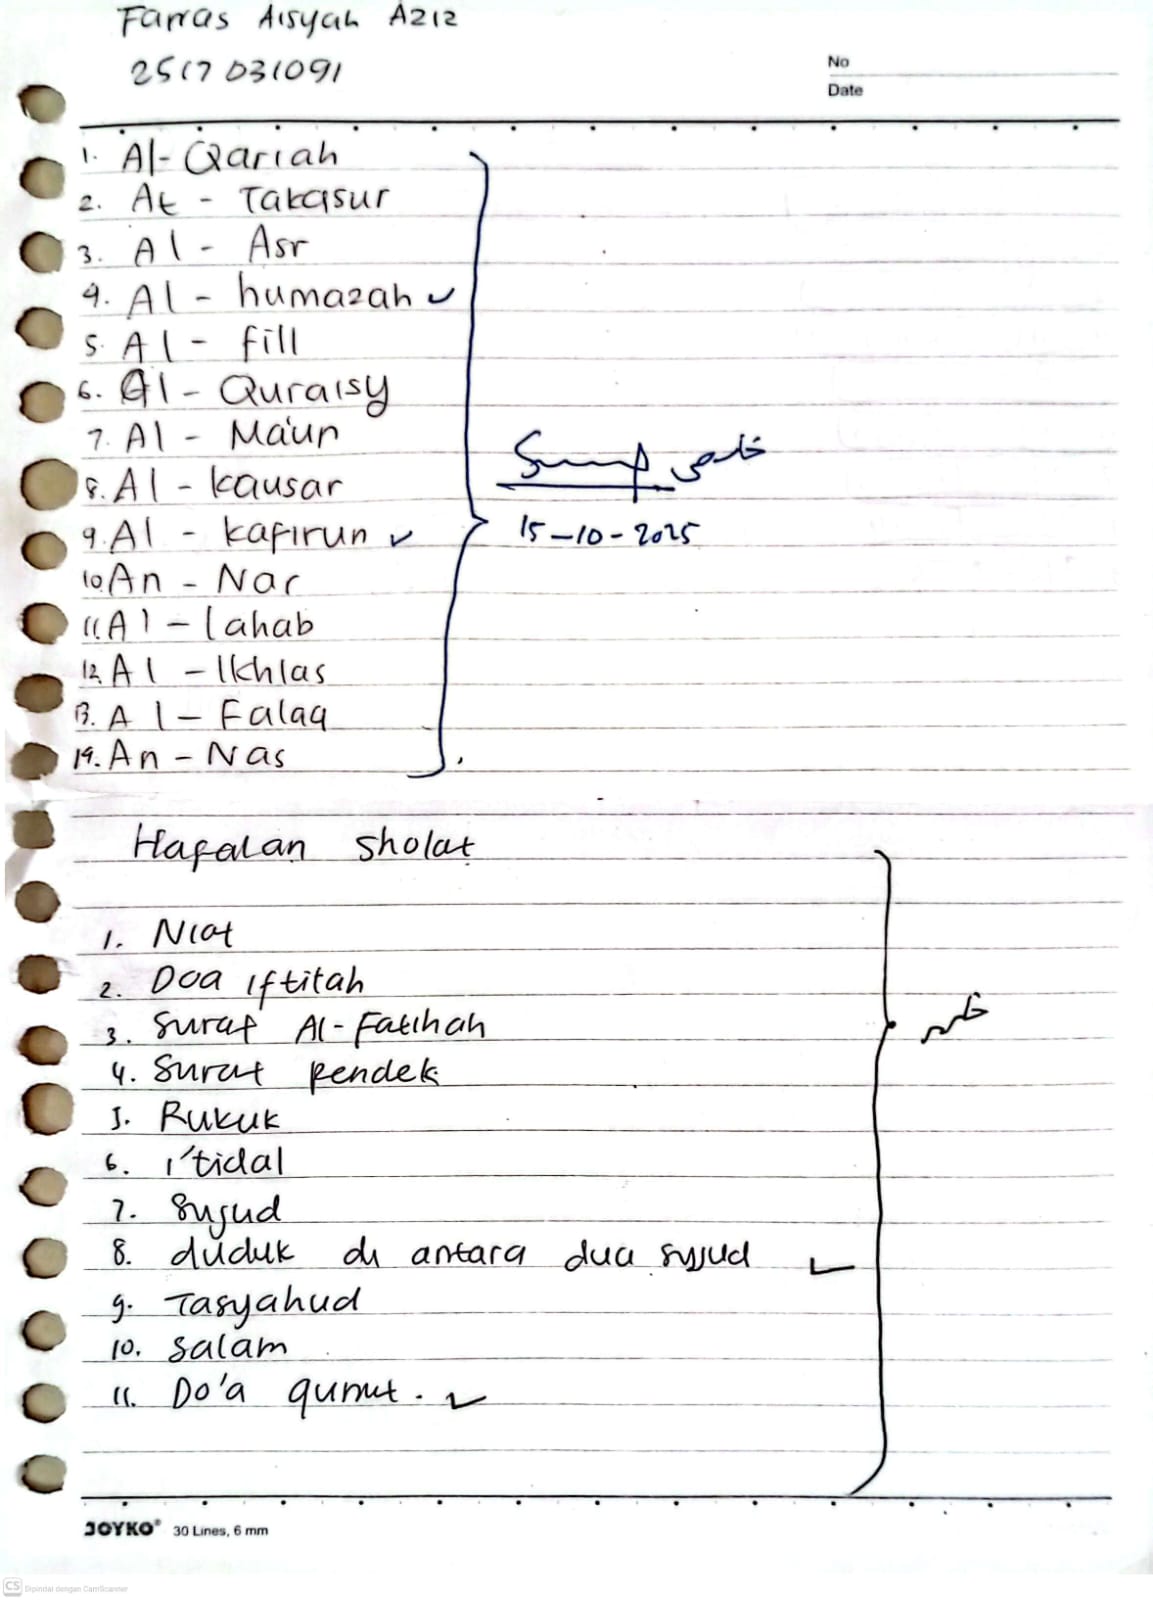 Farras Aisyah Aziz
2517031091
No
Date
1. Al-Qariah
2. At - Takasur
3. Al - Asr
4. Al - humazah ✓
5. Al - fill
6. Al - Quraisy
7. Al - Ma'un
8. Al - kausar
9. Al - kafirun ✓
10. An - Nar
11. Al - lahab
12. Al - Ikhlas
13. Al - Falaq
14. An - Nas
15-10-2025
Hafalan Sholat
1. Niat
2. Doa iftitah
3. Surat Al-Fatihah
4. Surat pendek
5. Rukuk
6. i'tidal
7. Sujud
8. duduk di antara dua sujud ✓
9. Tasyahud
10. Salam
11. Do'a qunut. ✓
JOYKO® 30 Lines, 6 mm
CS Dipindai dengan CamScanner